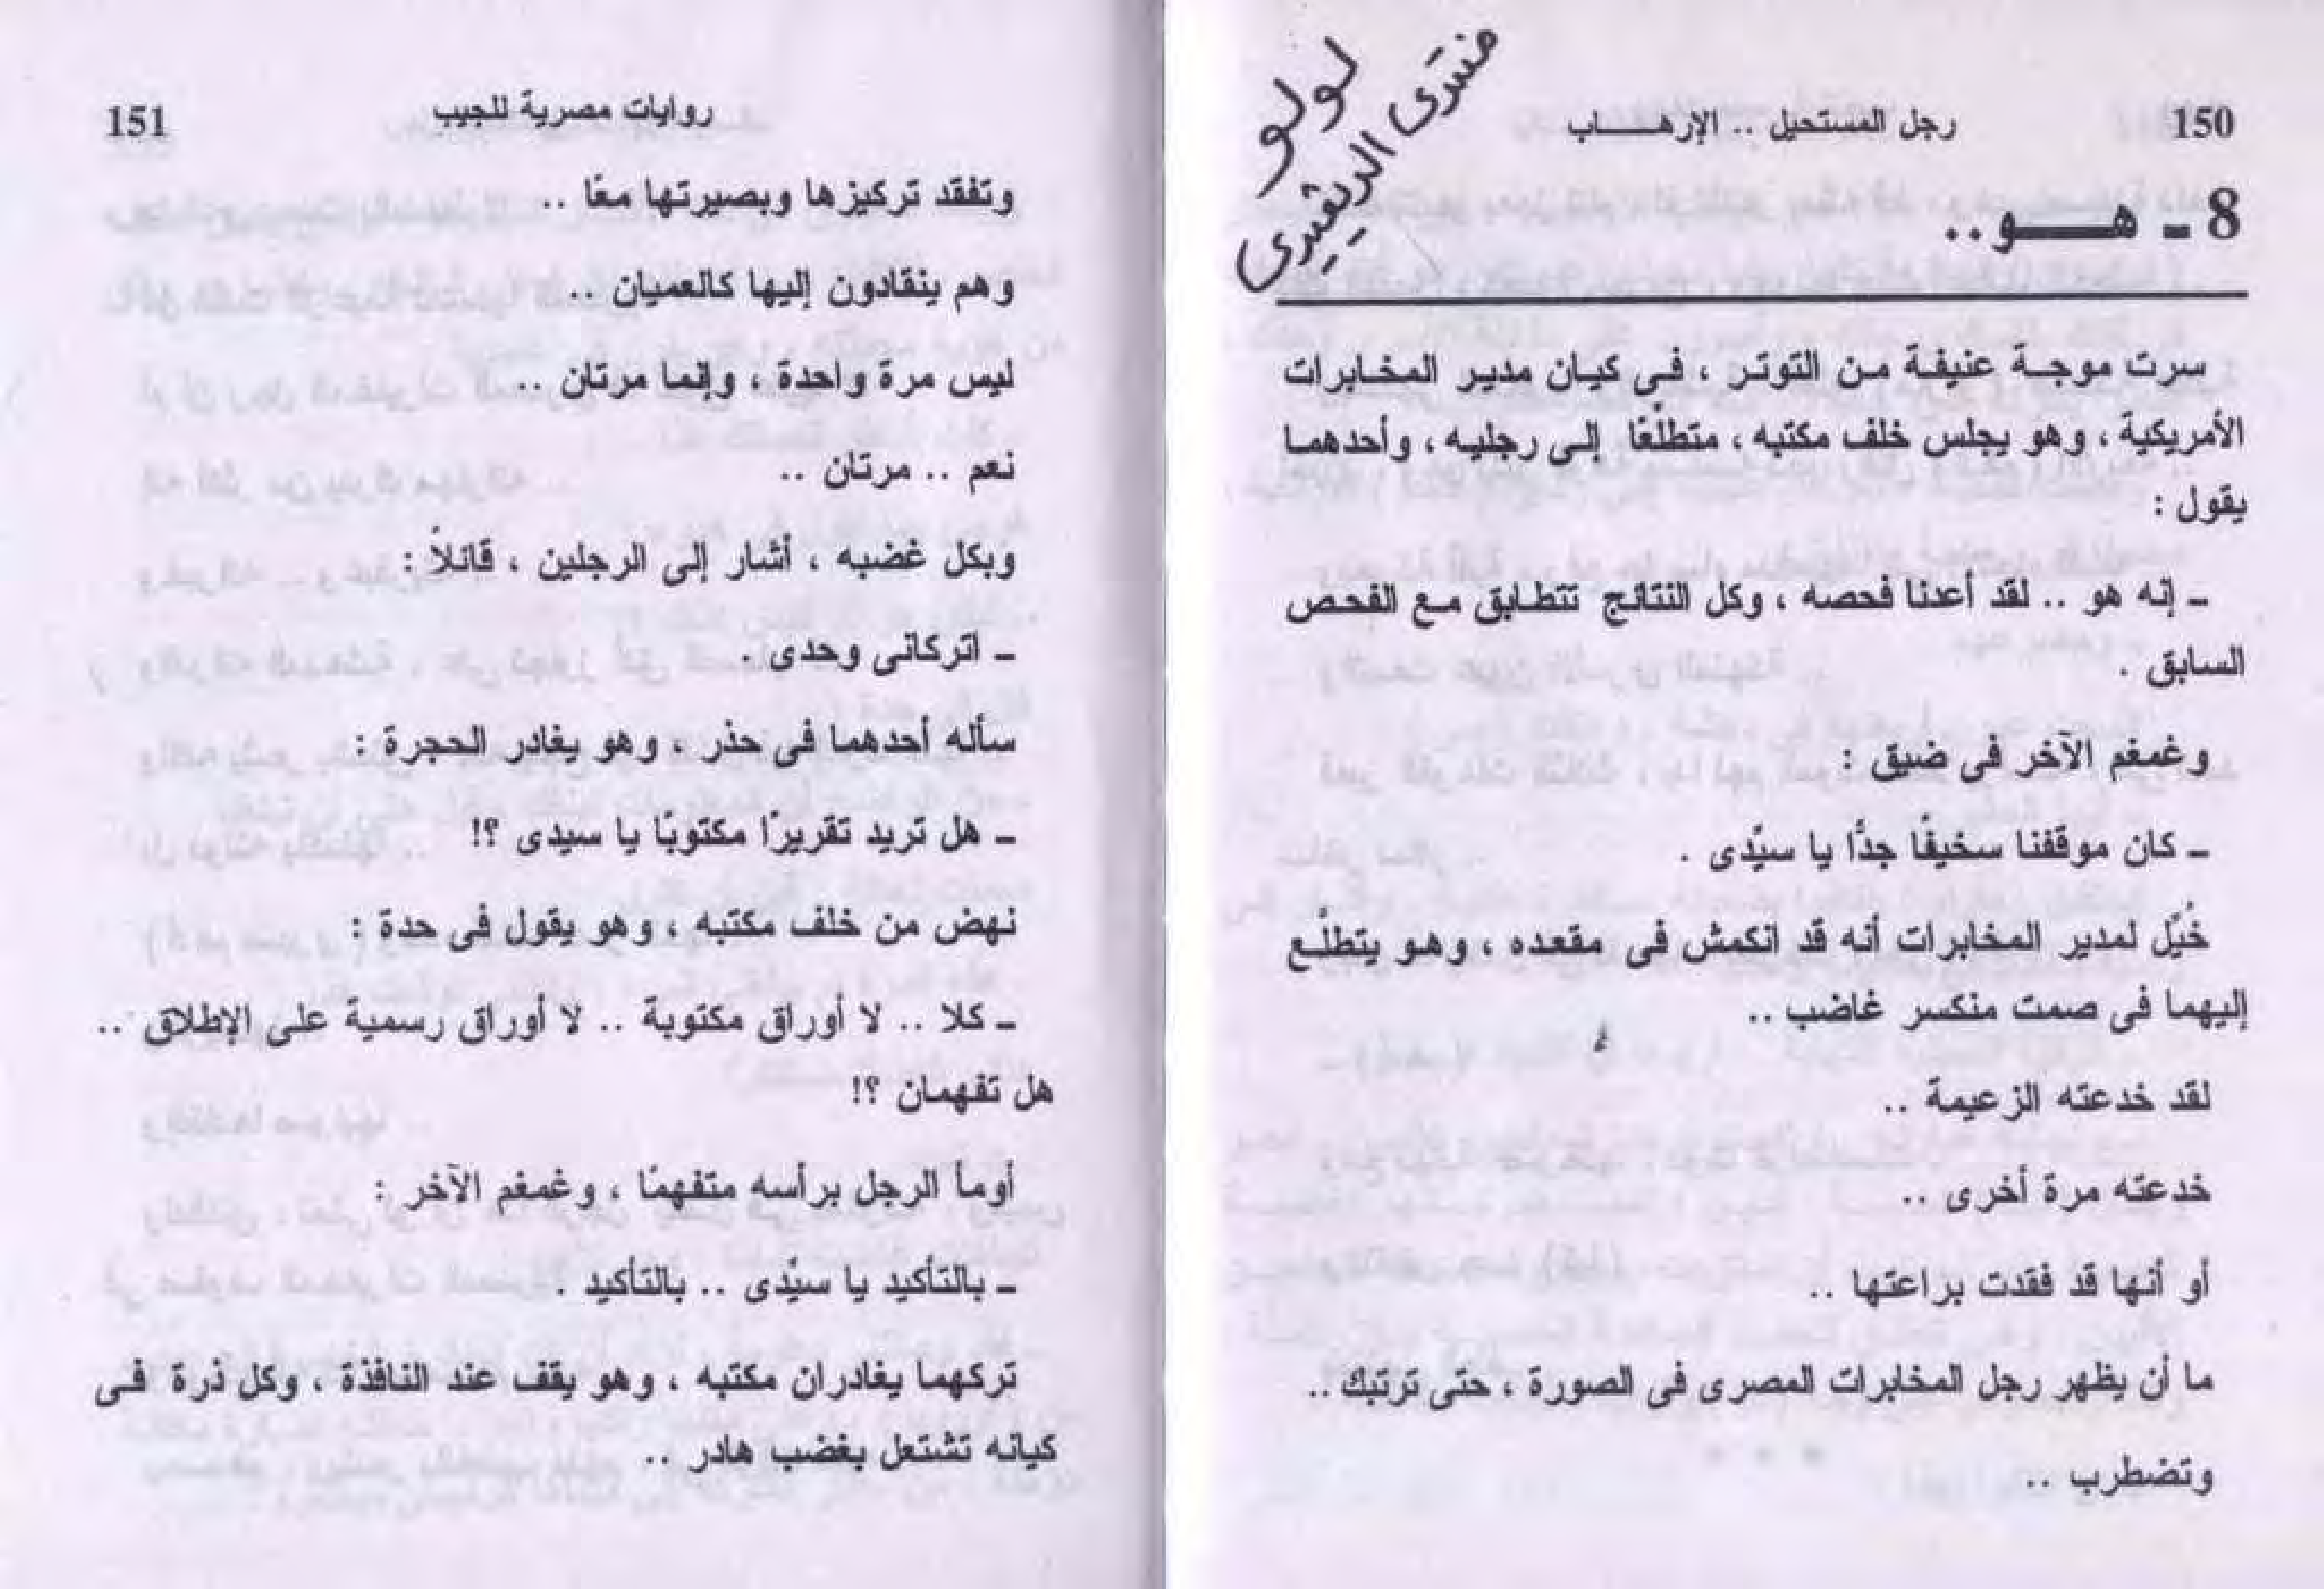 150
رجل المستحيل .. الإرهـــاب
لولو
منتدى
8 ـ هـــو..
سرت موجة عنيفة من التوتر ، فى كيان مدير المخابرات
الأمريكية ، وهو يجلس خلف مكتبه ، متطلّعًا إلى رجليه ، وأحدهما
يقول :
ـ إنه هو .. لقد أعدنا فحصه ، وكل النتائج تتطابق مع الفحص
السابق .
وغمغم الآخر فى ضيق :
ـ كان موقفنا سخيفًا جدًّا يا سيّدى .
خُيِّل لمدير المخابرات أنه قد انكمش فى مقعده ، وهو يتطلَّع
إليهما فى صمت منكسر غاضب ..
لقد خدعته الزعيمة ..
خدعته مرة أخرى ..
أو أنها قد فقدت براعتها ..
ما أن يظهر رجل المخابرات المصرى فى الصورة ، حتى ترتبك ..
وتضطرب ..
151
روايات مصرية للجيب
وتفقد تركيزها وبصيرتها معًا ..
وهم ينقادون إليها كالعميان ..
ليس مرة واحدة ، وإنما مرتان ..
نعم .. مرتان ..
وبكل غضبه ، أشار إلى الرجلين ، قائلاً :
ـ اتركانى وحدى .
سأله أحدهما فى حذر ، وهو يغادر الحجرة :
ـ هل تريد تقريرًا مكتوبًا يا سيدى ؟!
نهض من خلف مكتبه ، وهو يقول فى حدة :
ـ كلا .. لا أوراق مكتوبة .. لا أوراق رسمية على الإطلاق ..
هل تفهمان ؟!
أومأ الرجل برأسه متفهمًا ، وغمغم الآخر :
ـ بالتأكيد يا سيّدى .. بالتأكيد .
تركهما يغادران مكتبه ، وهو يقف عند النافذة ، وكل ذرة فى
كيانه تشتعل بغضب هادر ..